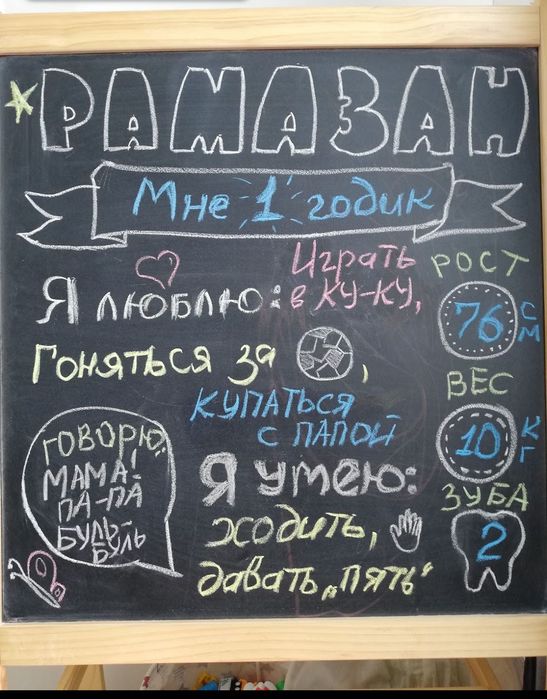 РАМАЗАН
Мне 1 годик
Я люблю: Играть
в ку-ку,
Гоняться за ,
купаться
с папой
РОСТ
76 СМ
ВЕС
10 КГ
ЗУБА
2
ГОВОРЮ:
МАМА!
ПА-ПА
БУДЬ-
БУЛЬ
Я умею:
ходить,
давать „пять“